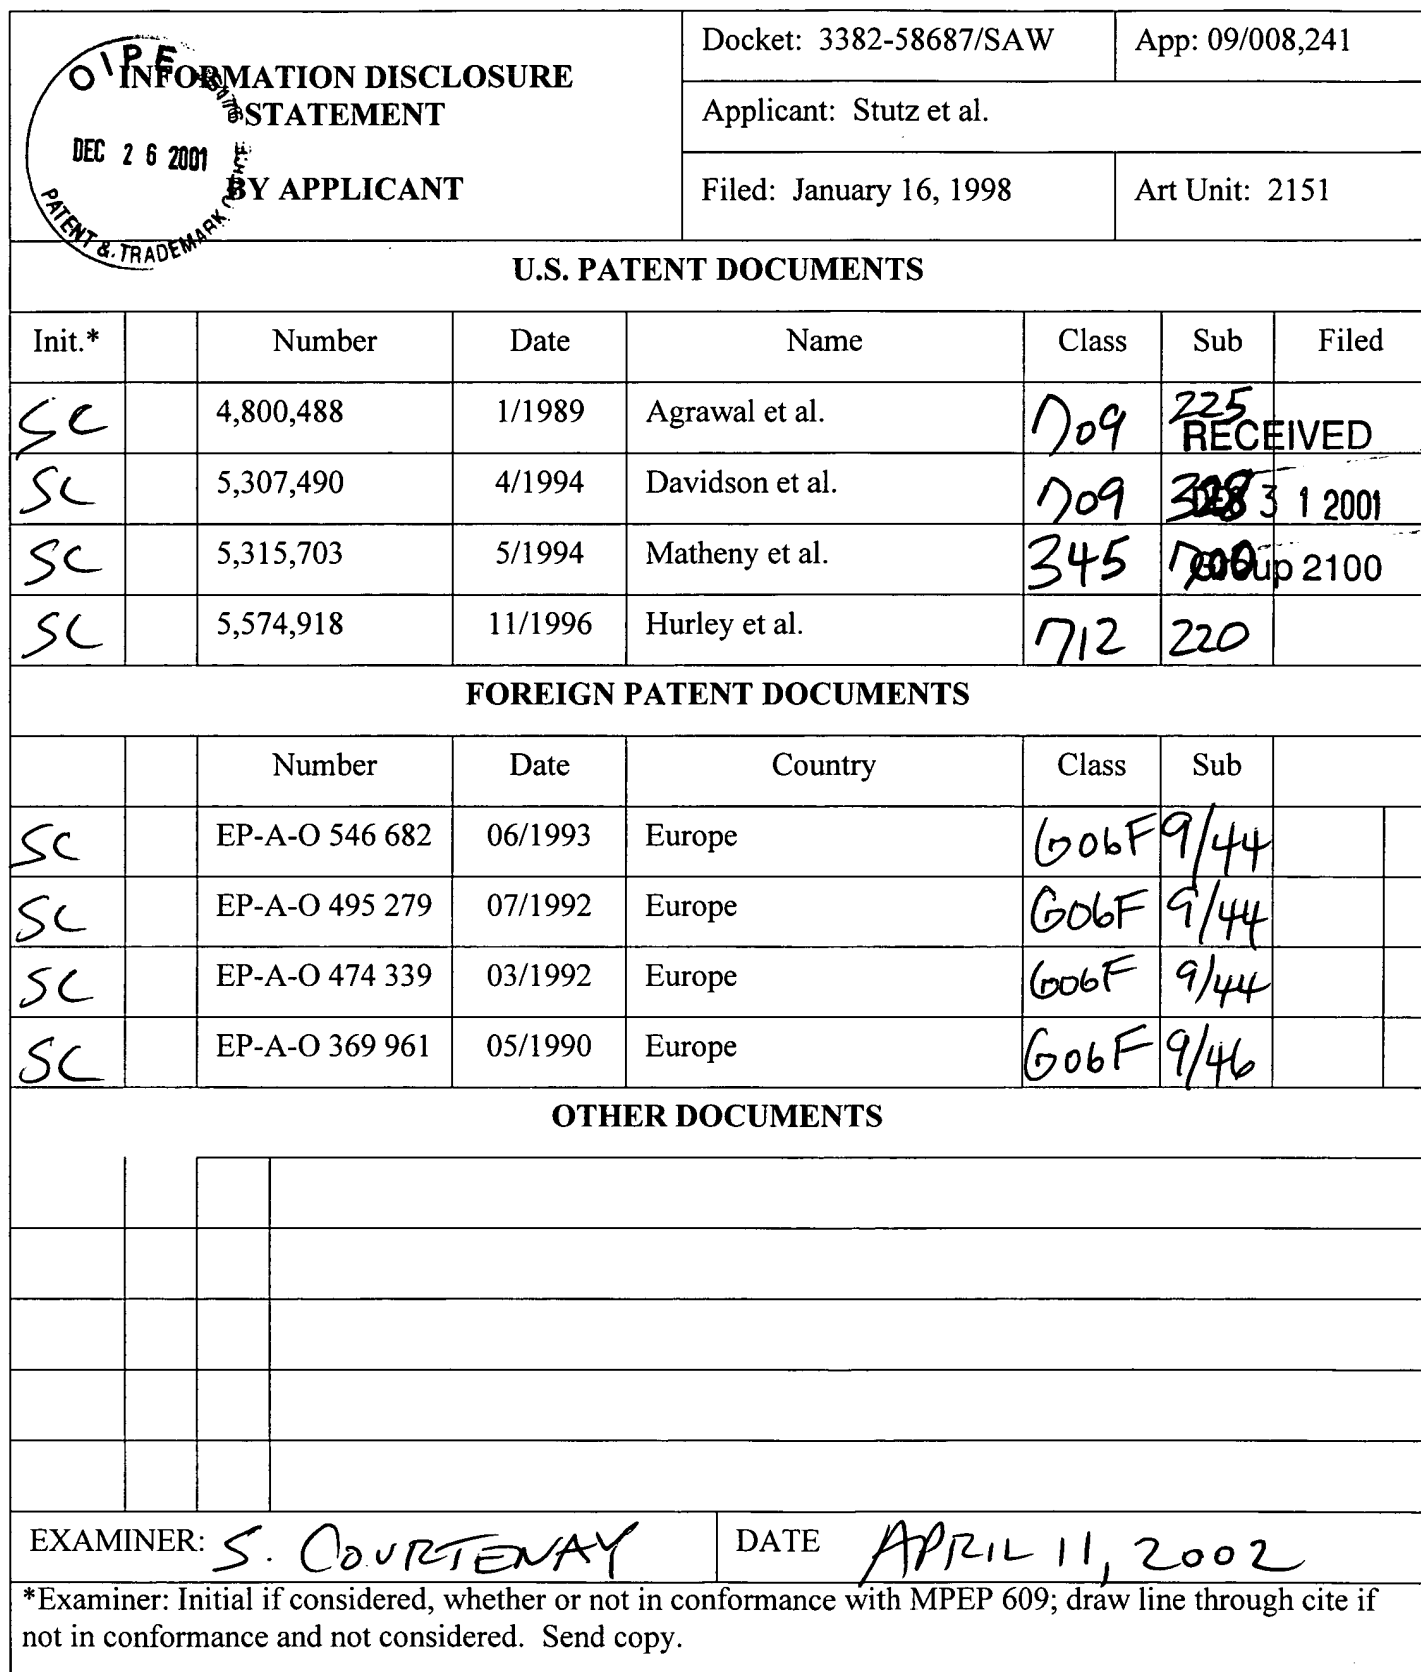 OIPE
DEC 26 2001
PATENT & TRADEMARK
INFORMATION DISCLOSURE
STATEMENT
BY APPLICANT
Docket: 3382-58687/SAW
App: 09/008,241
Applicant: Stutz et al.
Filed: January 16, 1998
Art Unit: 2151
U.S. PATENT DOCUMENTS
Init.* Number Date Name Class Sub Filed
SC 4,800,488 1/1989 Agrawal et al. 709 225
RECEIVED
SC 5,307,490 4/1994 Davidson et al. 709
31 2001
SC 5,315,703 5/1994 Matheny et al. 345
Group 2100
SC 5,574,918 11/1996 Hurley et al. 712 220
FOREIGN PATENT DOCUMENTS
Number Date Country Class Sub
SC EP-A-O 546 682 06/1993 Europe G06F 9/44
SC EP-A-O 495 279 07/1992 Europe G06F 9/44
SC EP-A-O 474 339 03/1992 Europe G06F 9/44
SC EP-A-O 369 961 05/1990 Europe G06F 9/46
OTHER DOCUMENTS
EXAMINER: S. COURTENAY DATE APRIL 11, 2002
*Examiner: Initial if considered, whether or not in conformance with MPEP 609; draw line through cite if
not in conformance and not considered. Send copy.